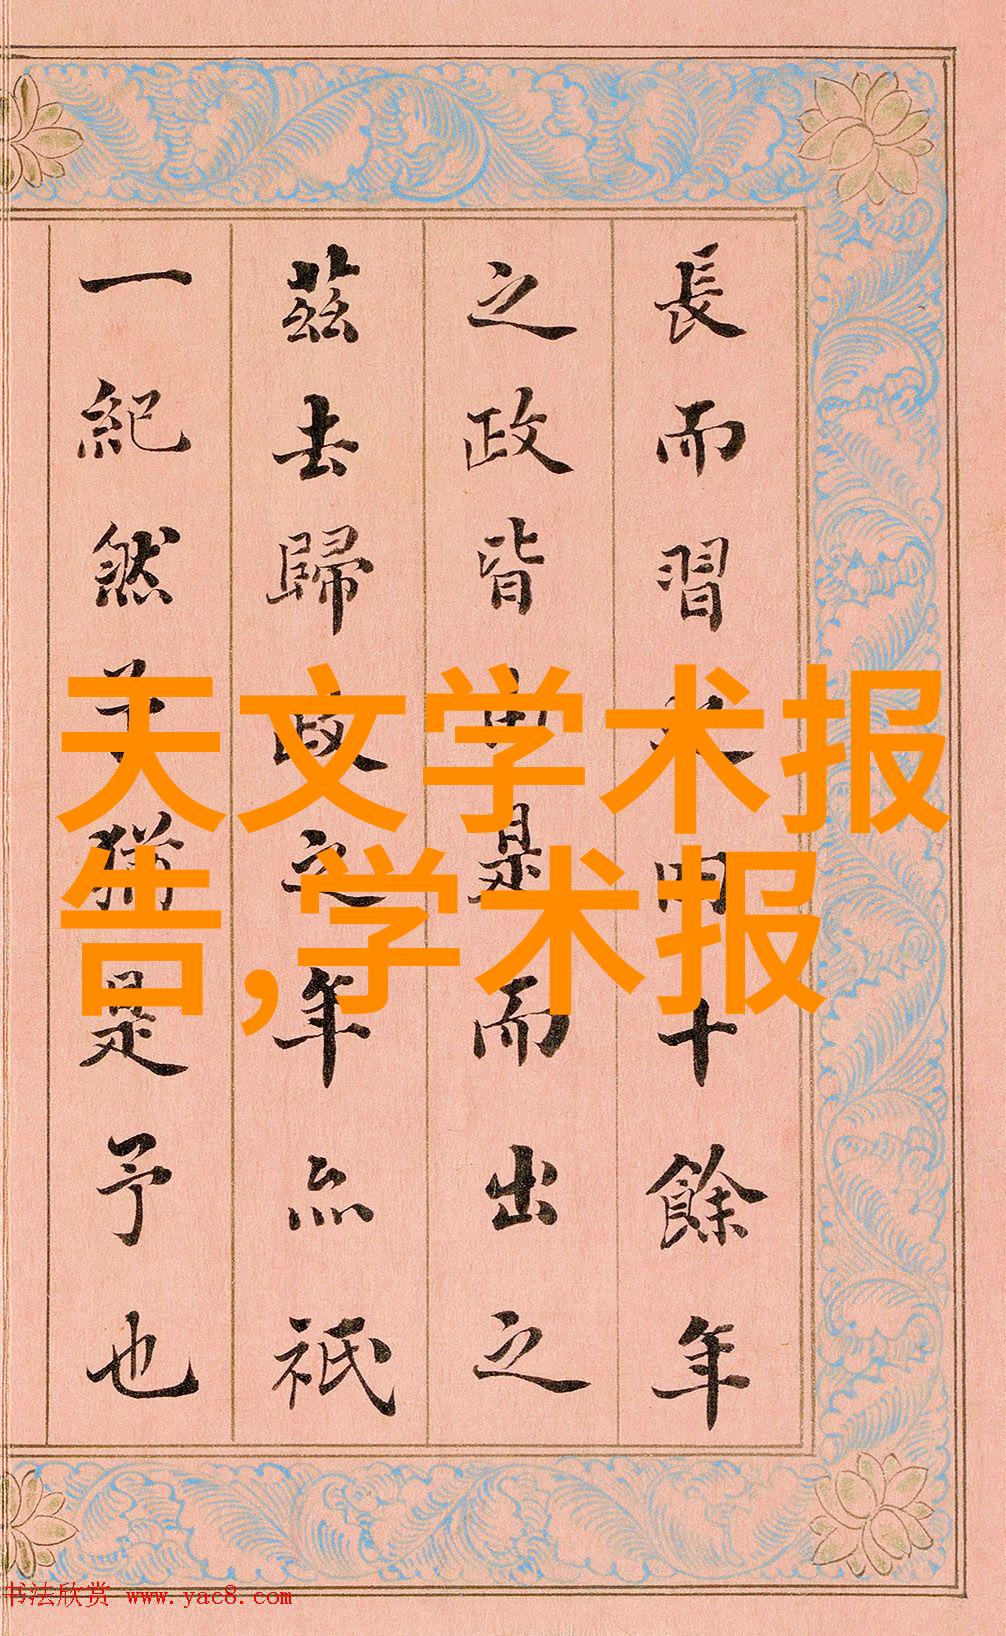 長而習四十餘年
之政皆由是而出之
茲去歸政之年亦祇
一紀然予猶是予也
天文学术报
告,学术报
书法欣赏 www.yac8.com